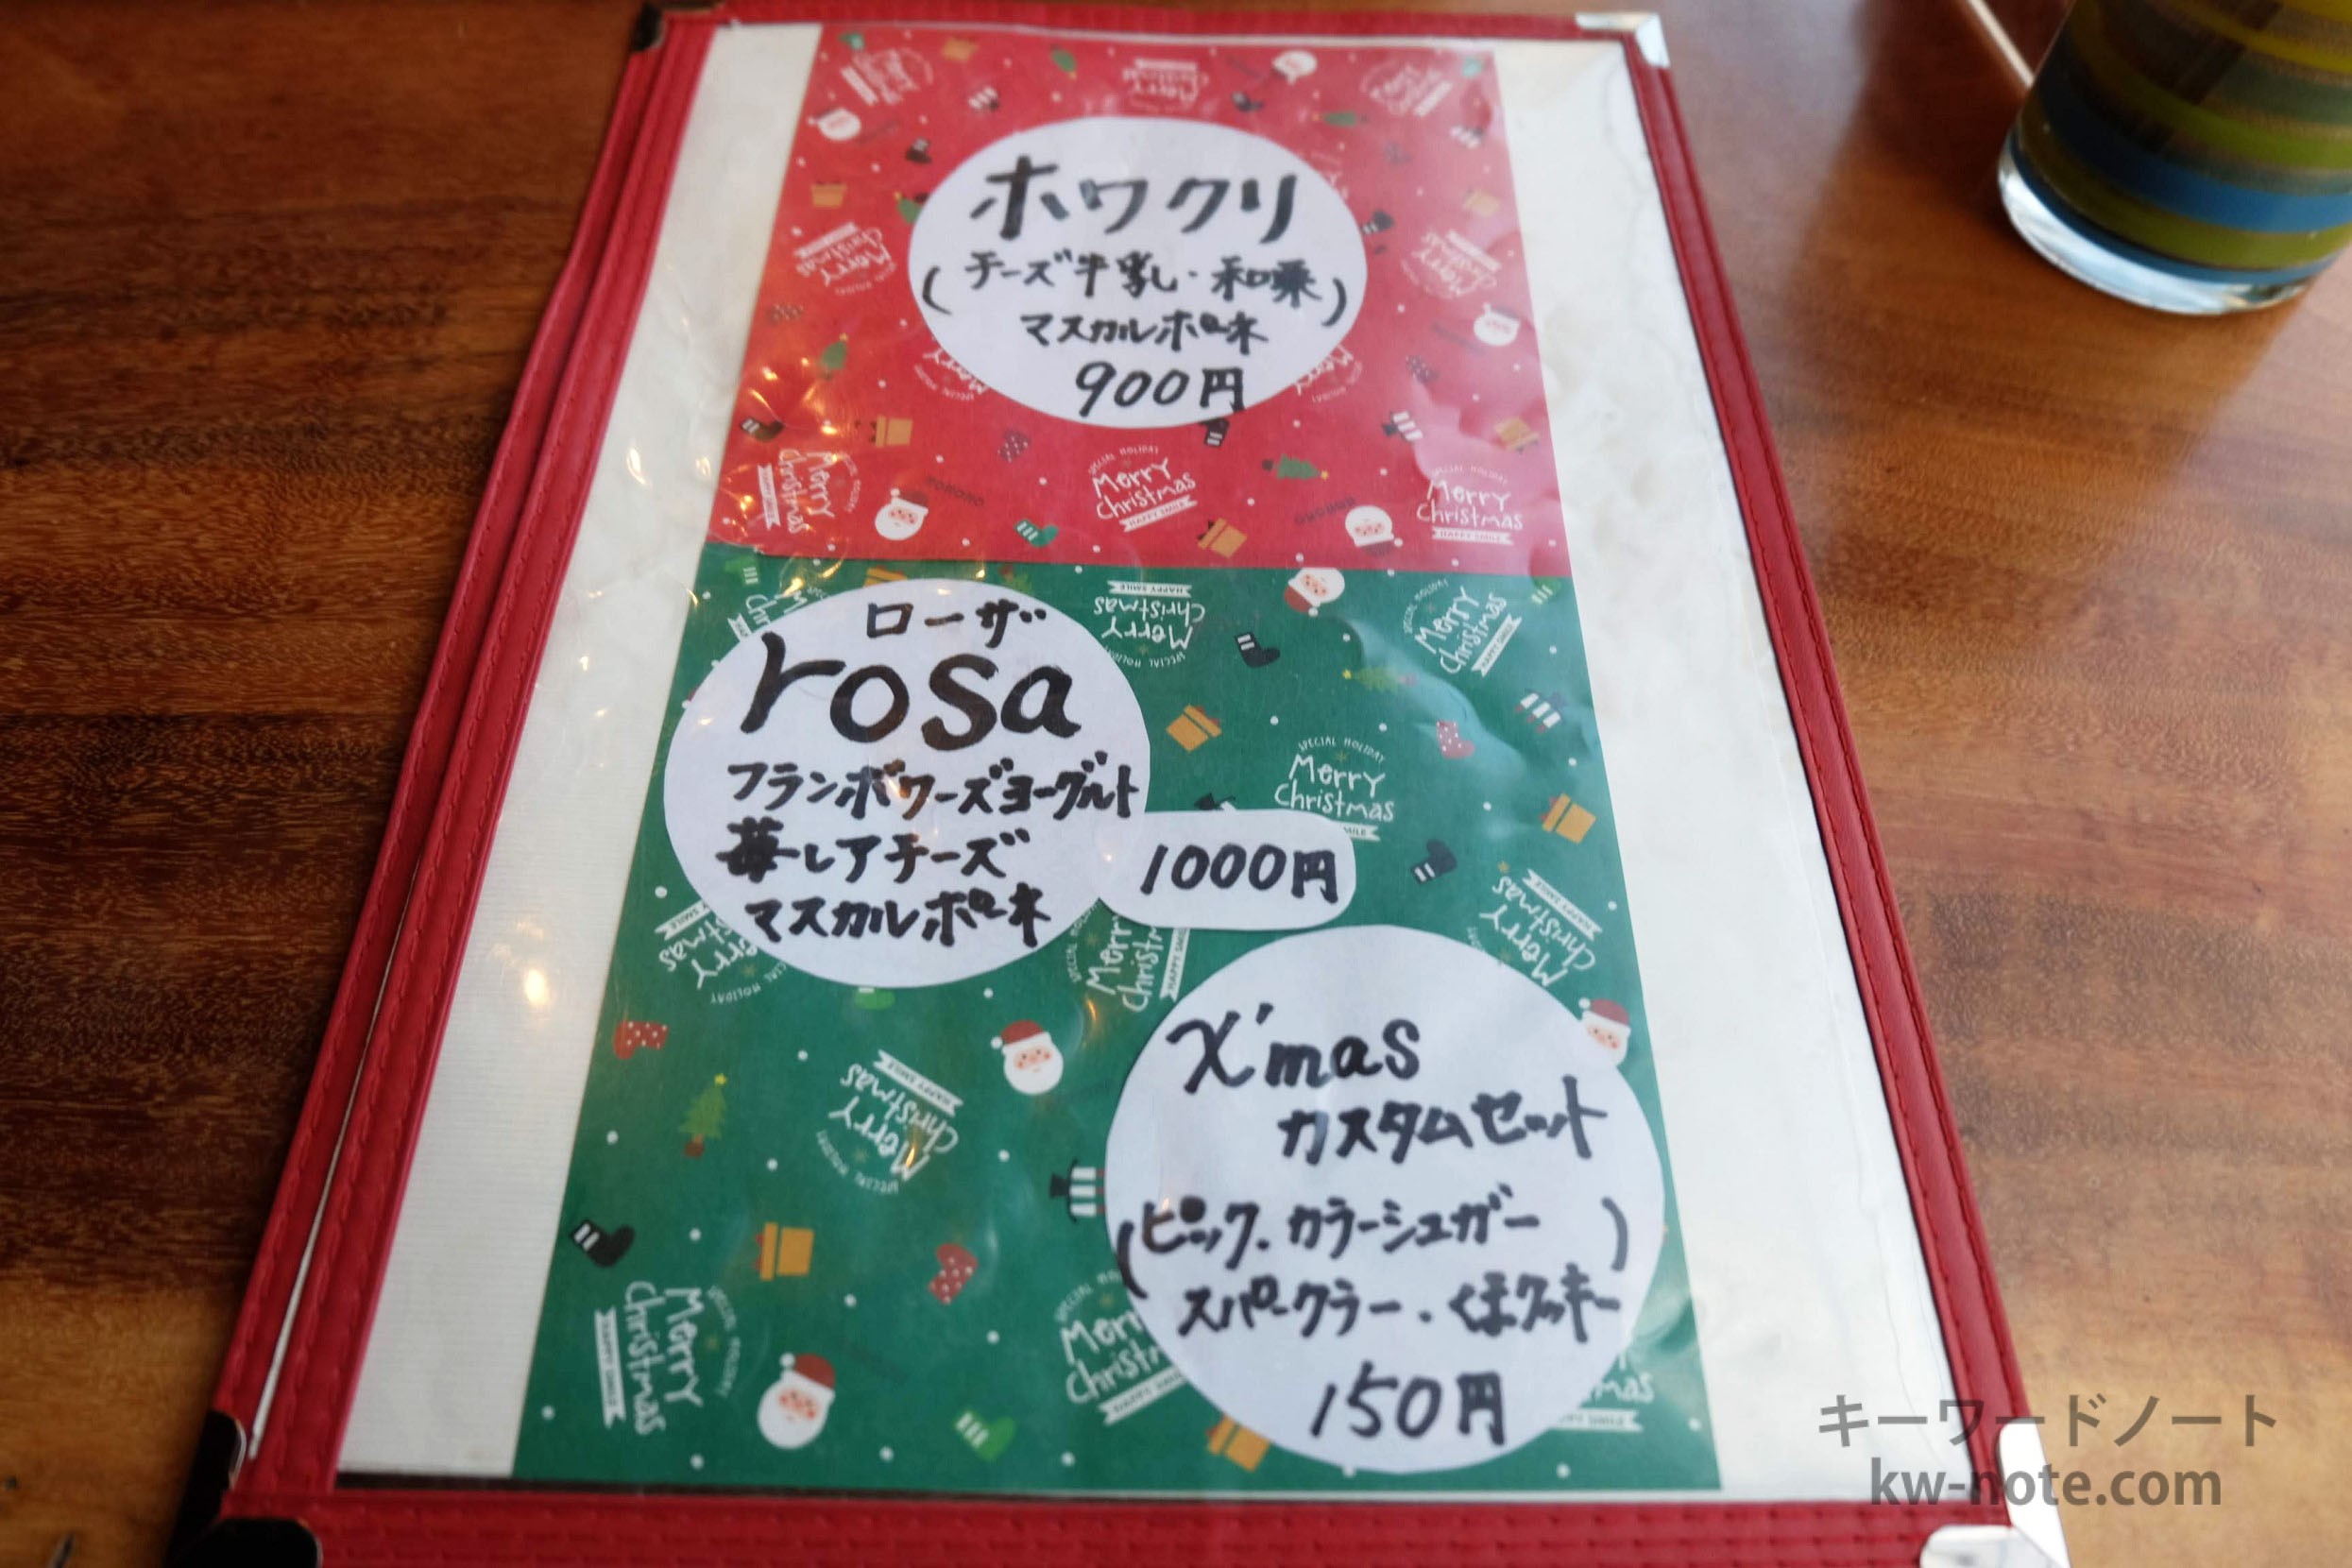 ホワクリ
(チーズ牛乳・和栗
マスカルポーネ)
900円
SPECIAL HOLIDAY
Merry
Christmas
HAPPY SMILE
Merry
Christmas
HAPPY SMILE
ローザ
rosa
フランボワーズヨーグルト
苺レアチーズ
マスカルポーネ
1000円
SPECIAL HOLIDAY
Merry
Christmas
X'mas
カスタムセット
(ピック.カラーシュガー
スパークラー・くまクッキー)
150円
キーワードノート
kw-note.com